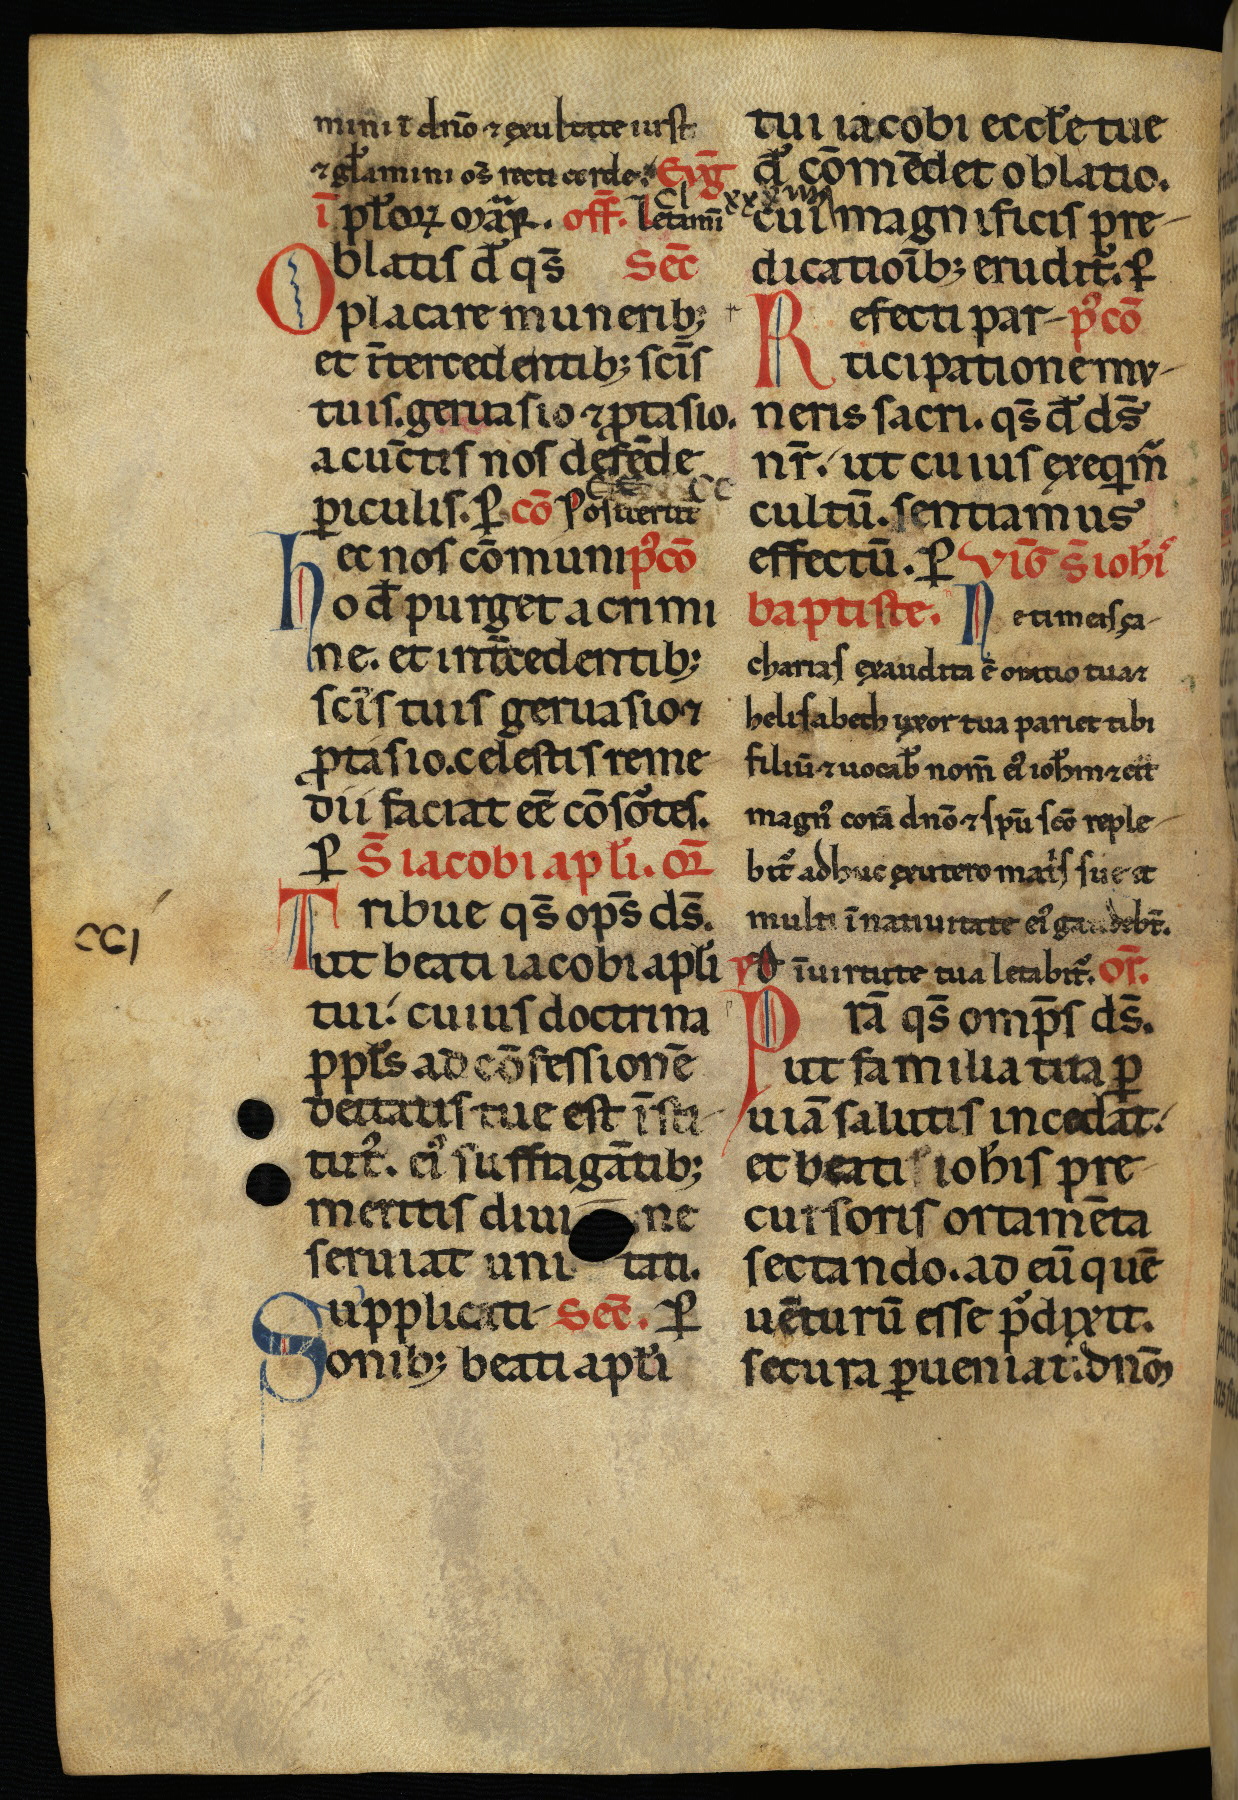 mini ī dn̄o ⁊ exultate iusti
⁊ gl̄amini om̄s recti corde. Evḡ
ī pl̄oꝝ mār̄. off̄. letamī
cl xxxviiij
Oblatis d̄ qs̄ Sēc
placare munerib;
et īntercedentib; scīs
tuis. geruasio ⁊ ꝓtasio.
a cūctis nos defēde
ꝑiculis. ꝑ cō Posuerūt
cc
Hec nos cōmuni p᷒cō
o d̄ purget a crimi
ne. et int̄cedentib;
scīs tuis geruasio ⁊
ꝓtasio. celestis reme
dii faciat eē cōsor̄tes.
ꝑ S̄ iacobi apl̄i. or̄
Tribue qs̄ op̄s ds̄.
ut beati iacobi apl̄i
CCI
tui. cuius doctrina
ppl̄s ad cōfessionē
deitatis tue est īsti
tut᷒. ei᷒ suffragātib;
meritis diui ne
seruiat uni tati.
Supplicati Sēc. ꝑ
onib; beati apl̄i
tui iacobi eccl̄e tue
d̄ cōmēdet oblatio.
cui magnificis pre-
dicatioīb; erudit᷒. ꝑ
Refecti par- p᷒cō
ticipatione mu-
neris sacri. qs̄ d̄ ds̄
nr̄. ut cuius exeqm̄
cultū. sentiamus
effectū. ꝑ Viḡ s̄ ioh̄i
baptiste. Ne timeas ça-
charias exaudita ē oratio tua ⁊
helisabeth uxor tua pariet tibi
filiū ⁊ uocab̄ nom̄ ei᷒ ioh̄m ⁊ erit
magn᷒ corā dn̄o ⁊ sp̄u scō reple-
bit᷒ adhuc ex utero mat̄s sue et
multi ī natiuitate ei᷒ gaudebt̄.
ps̄ d īuirtute tua letabit᷒. or̄.
Prā qs̄ omp̄s ds̄.
ut familia tua ꝑ
uiā salutis incedat.
et beati ioh̄is pre
cursoris ortamēta
sectando. ad eū quē
uēturū esse p̄dixit.
secura ꝑueniat. dn̄m